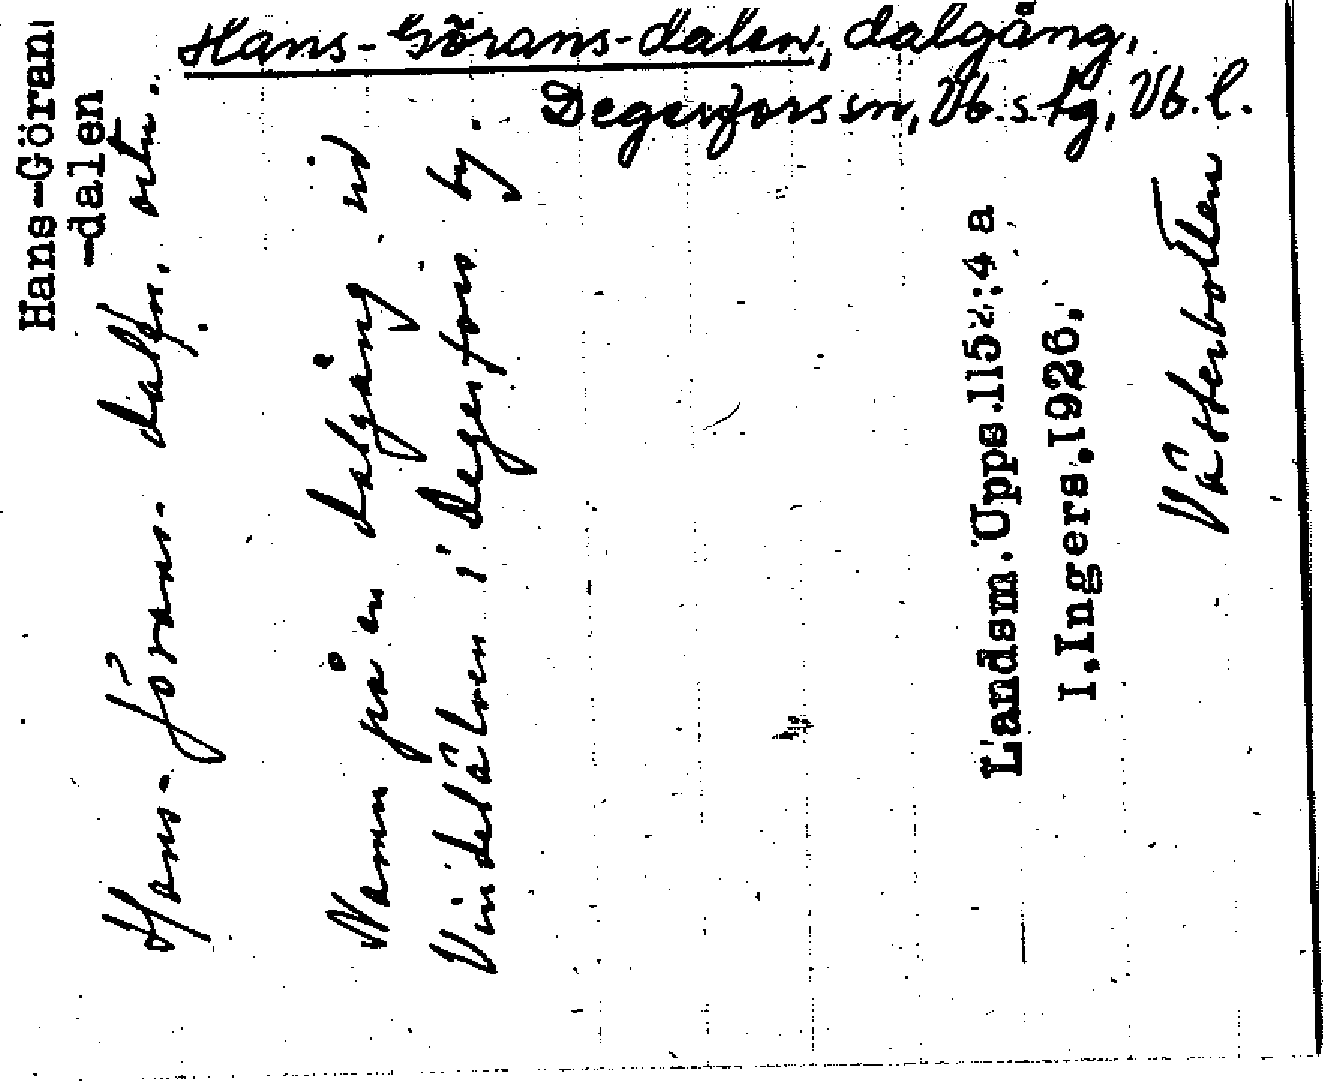 Hans-Görans-dalen, dalgång,
Degerfors sn, Vb. s. tg, Vb. l.
Hans-Göran
-dalen
Hans-Görans-dalen, ortn.
Namn på en dalgång vid
Vindelälven i Degerfors by.
Landsm. Upps.1152:4 a
I.Ingers.1926,
Västerbotten